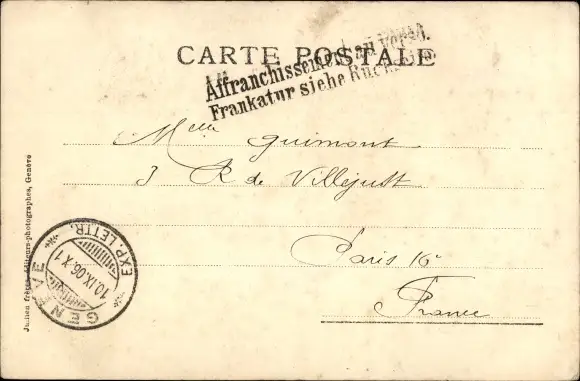 CARTE POSTALE
Affranchissement au verso.
Frankatur siehe Rücks
Melle Guimont
3 R de Villejust
Paris 16e
France
GENÈVE
EXP. LETTR.
10.IX.06.X1
Jullien frères éditeurs-photographes, Genève